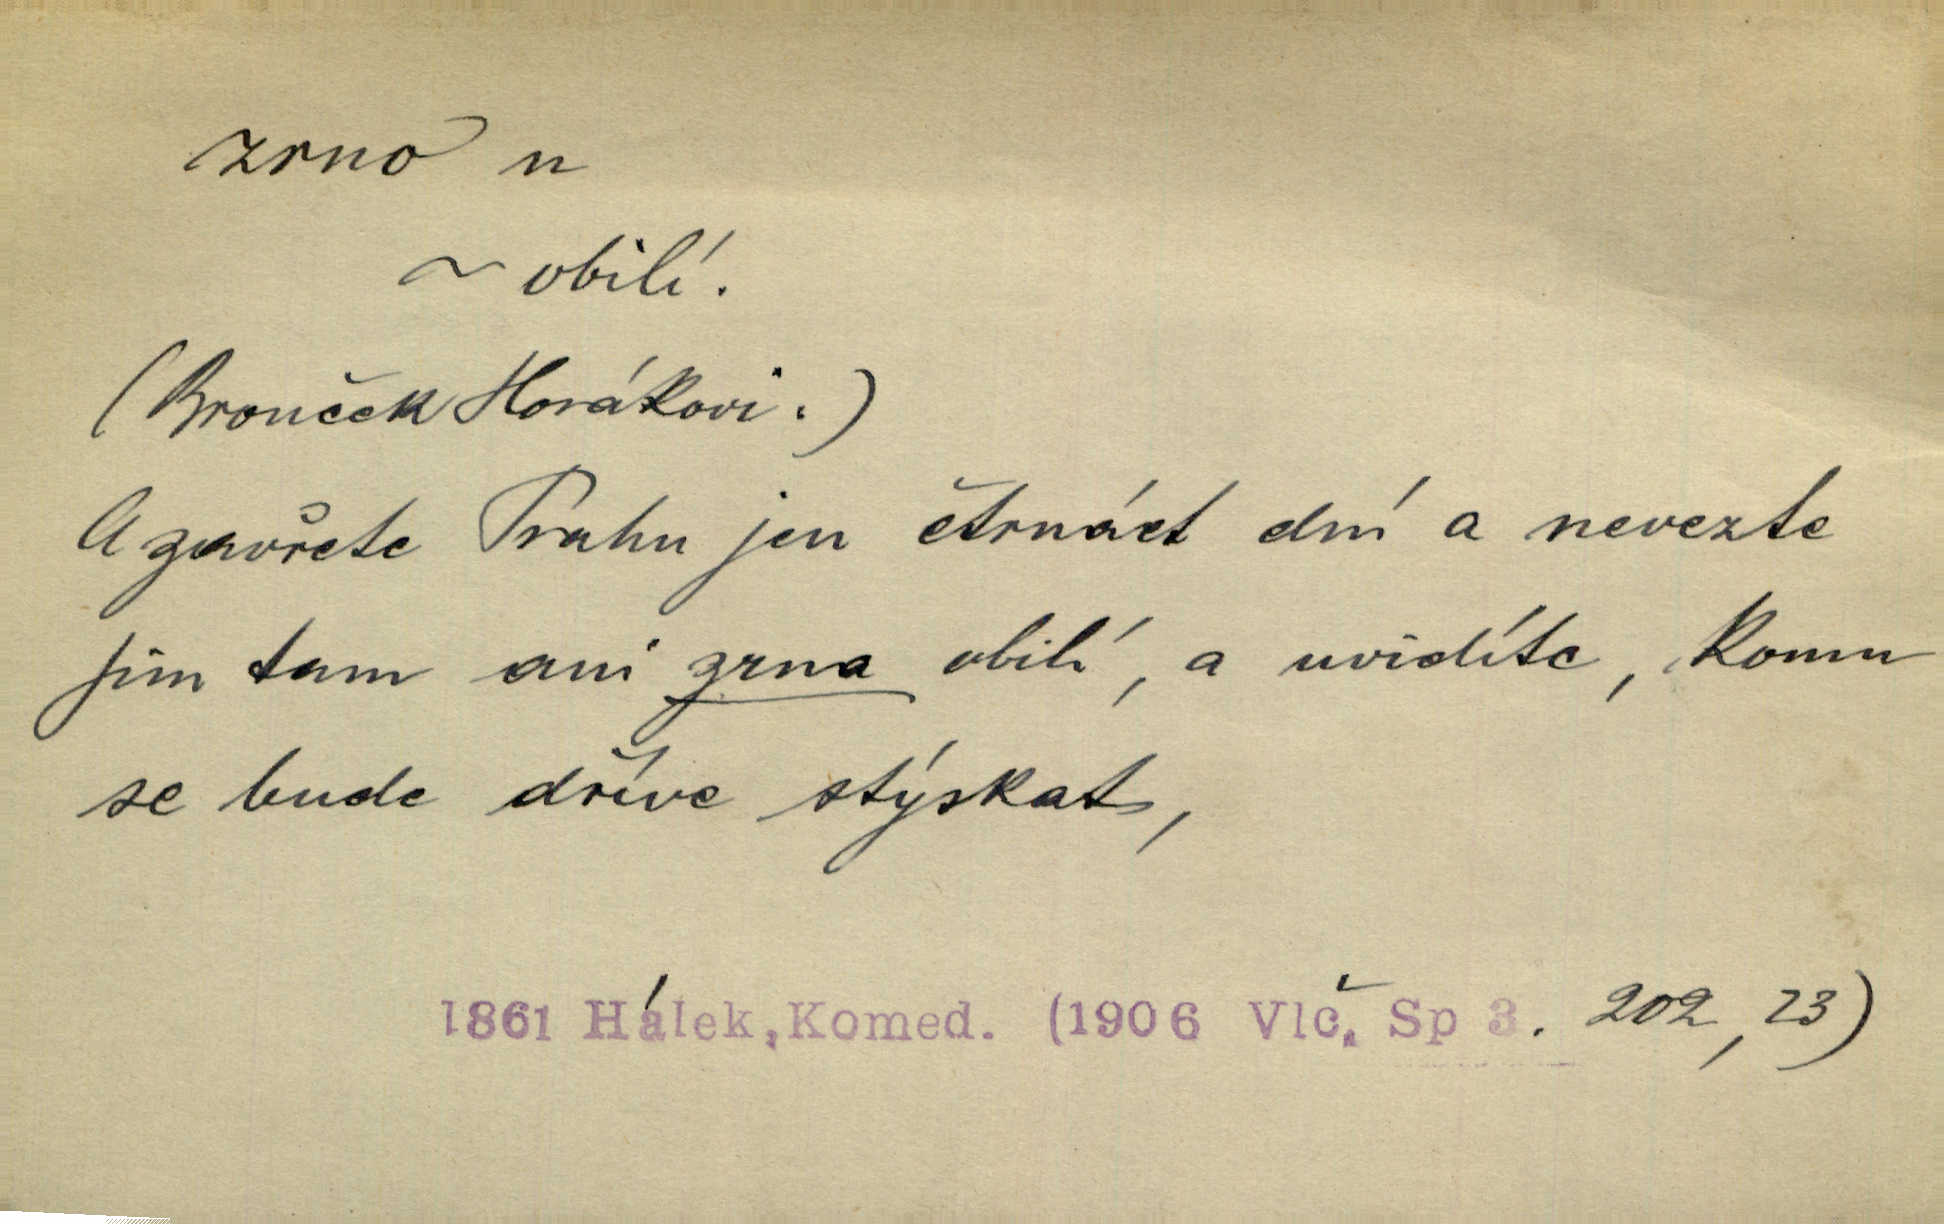 zrno n
~ obilí.
(Brouček Horákovi.)
A zavřete Prahu jen čtrnáct dní a nevezte
jim tam ani zrna obilí, a uvidíte, komu
se bude dříve stýskat,
1861 Hálek, Komed. (1906 Vlč. Sp 3. 202, 23)